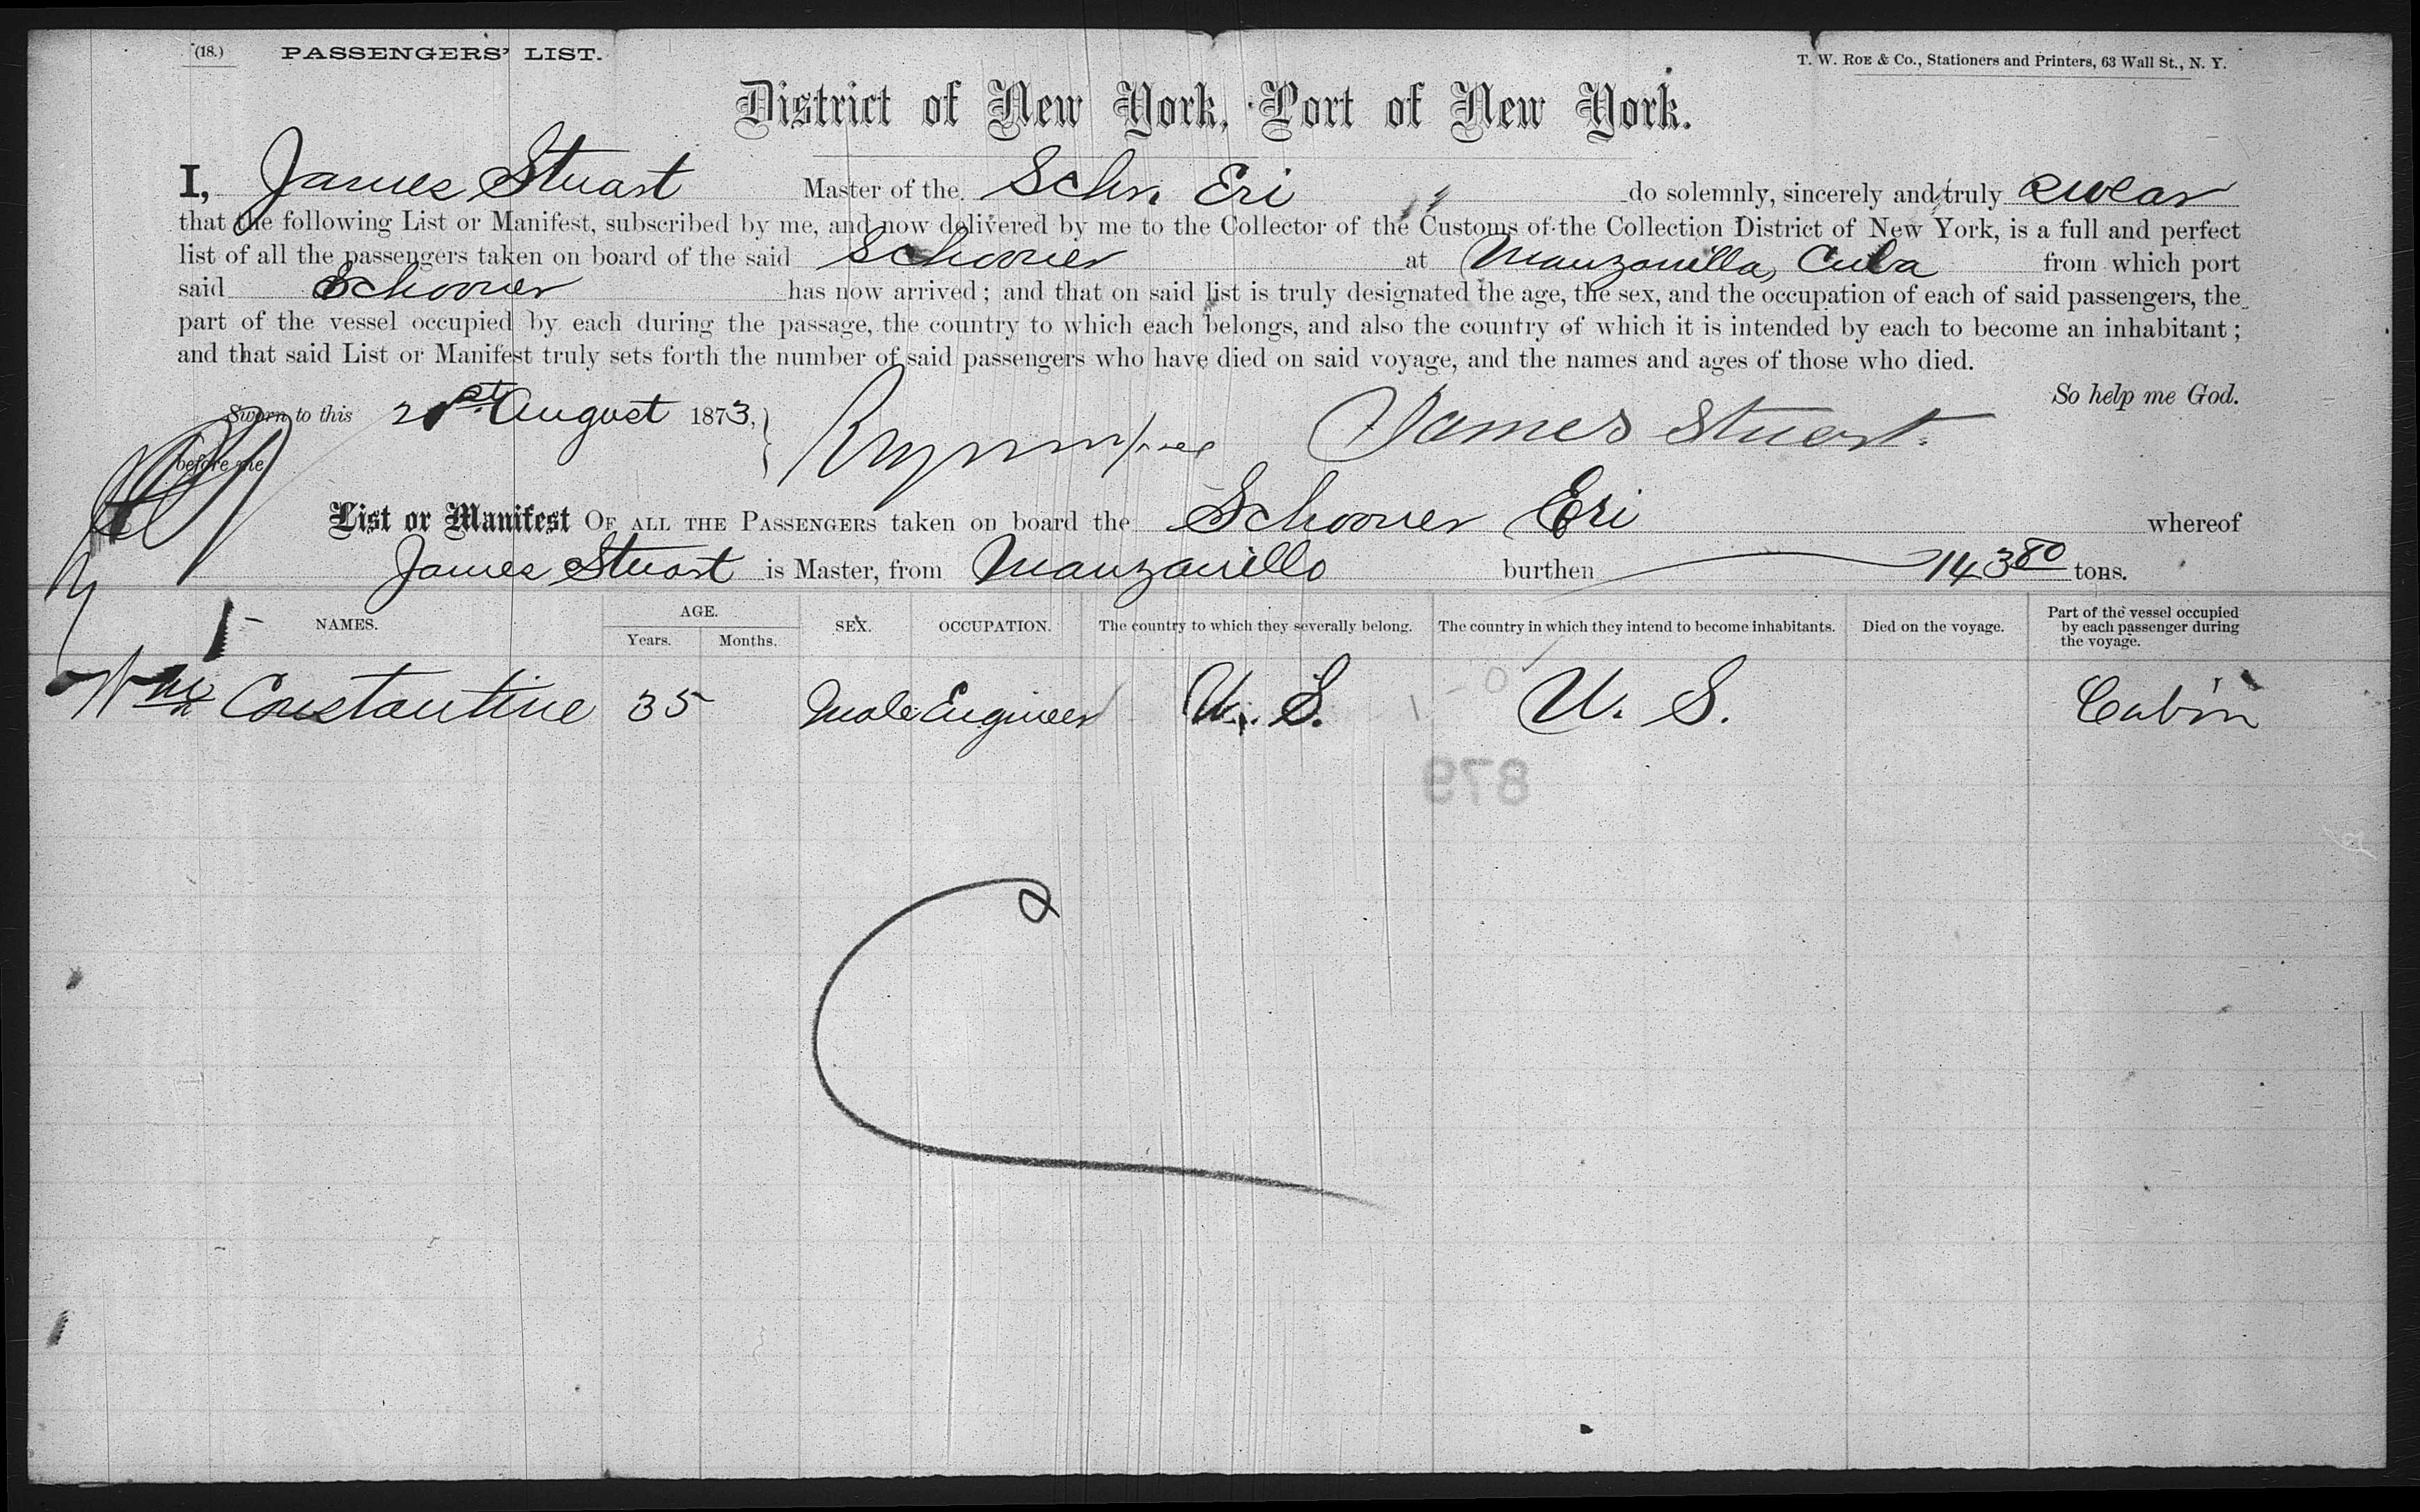 (18.) PASSENGERS' LIST.
T. W. ROE & Co., Stationers and Printers, 63 Wall St., N. Y.
District of New York, Port of New York.
I, James Stuart Master of the Schr Eri " do solemnly, sincerely and truly swear
that the following List or Manifest, subscribed by me, and now delivered by me to the Collector of the Customs of the Collection District of New York, is a full and perfect
list of all the passengers taken on board of the said Schooner at Manzanilla, Cuba from which port
said Schooner has now arrived; and that on said list is truly designated the age, the sex, and the occupation of each of said passengers, the
part of the vessel occupied by each during the passage, the country to which each belongs, and also the country of which it is intended by each to become an inhabitant;
and that said List or Manifest truly sets forth the number of said passengers who have died on said voyage, and the names and ages of those who died.
So help me God.
Sworn to this 21st August 1873, James Stuart.
before me
List or Manifest OF ALL THE PASSENGERS taken on board the Schooner Eri whereof
James Stuart is Master, from Manzanillo burthen 143 80 tons.
NAMES. AGE. SEX. OCCUPATION. The country to which they severally belong. The country in which they intend to become inhabitants. Died on the voyage. Part of the vessel occupied by each passenger during the voyage.
Years. Months.
1
Wm Constantine 35 Male Engineer U. S. U. S. Cabin
879